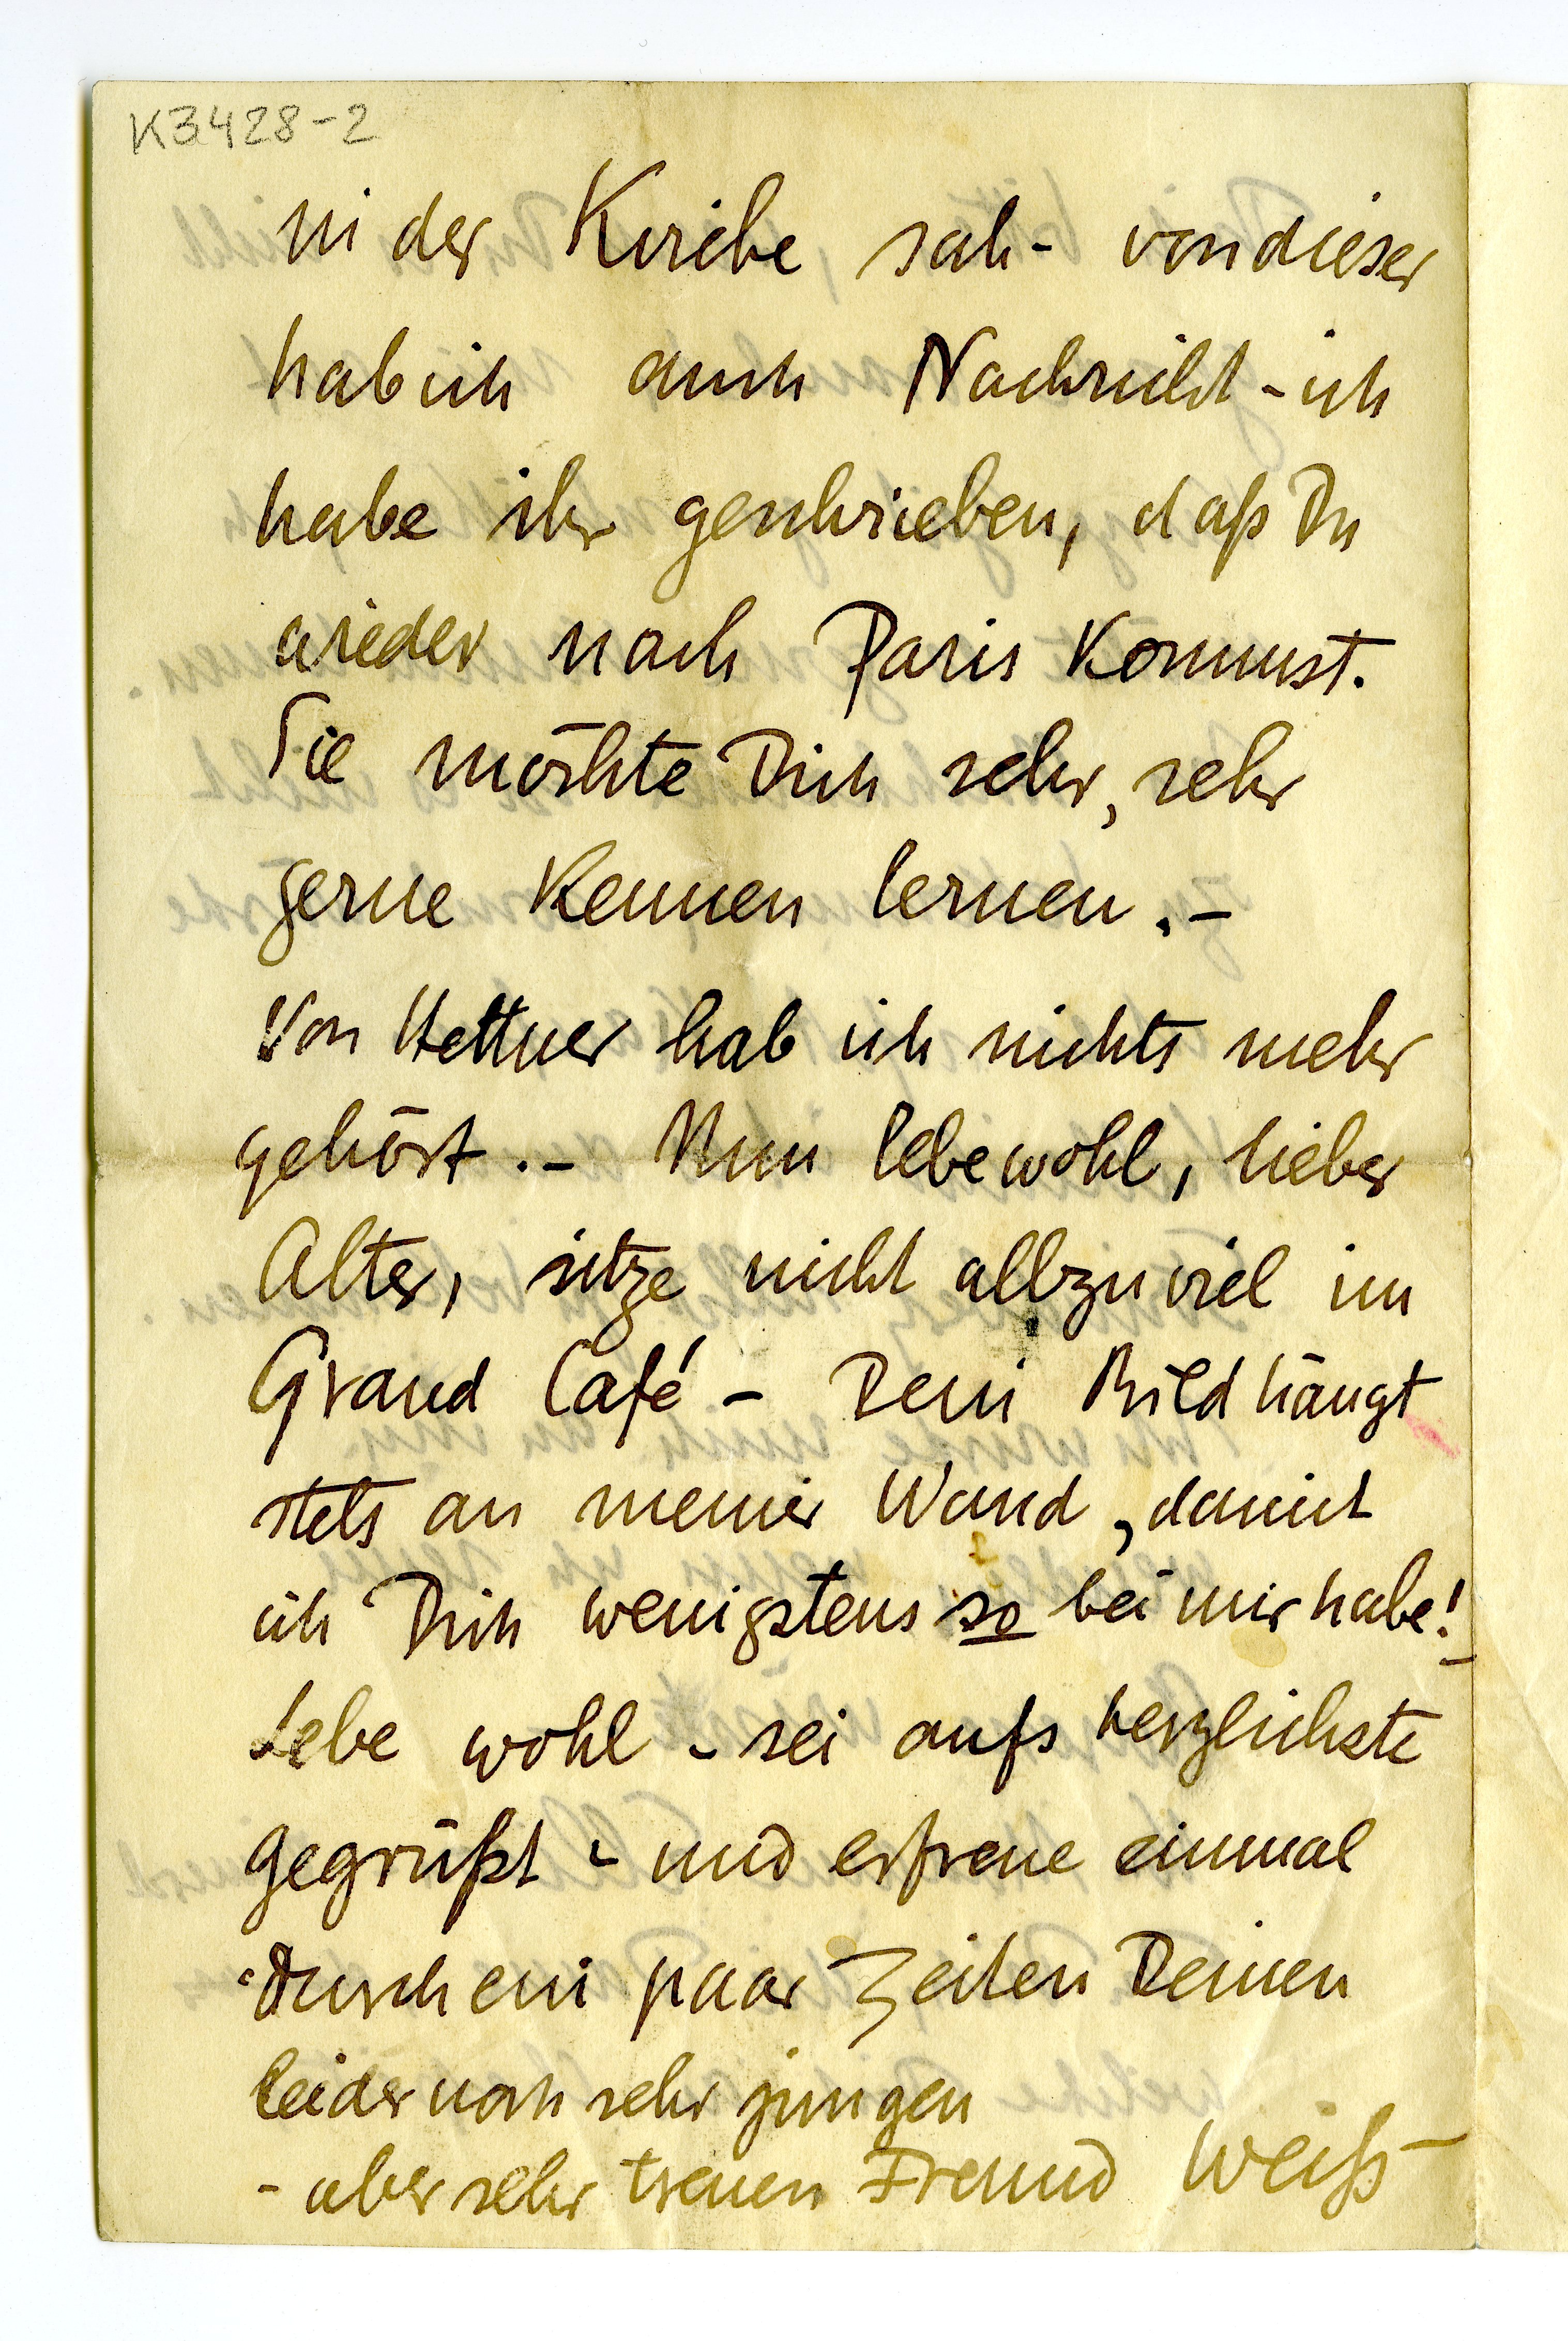 K3428-2
in der Kirche sah - von dieser
hab ich auch Nachricht - ich
habe ihr geschrieben, daß Du
wieder nach Paris kommst.
Sie möchte Dich sehr, sehr
gerne kennen lernen. -
Von Hettner hab ich nichts mehr
gehört. - Nun lebewohl, lieber
Alter, sitze nicht allzuviel im
Grand Café - Dein Bild hängt
stets an meiner Wand, damit
ich Dich wenigstens so bei mir habe!
Lebe wohl - sei aufs herzlichste
gegrüßt - und erfreue einmal
durch ein paar Zeilen Deinen
leider noch sehr jungen
- aber sehr treuen Freund Weiß